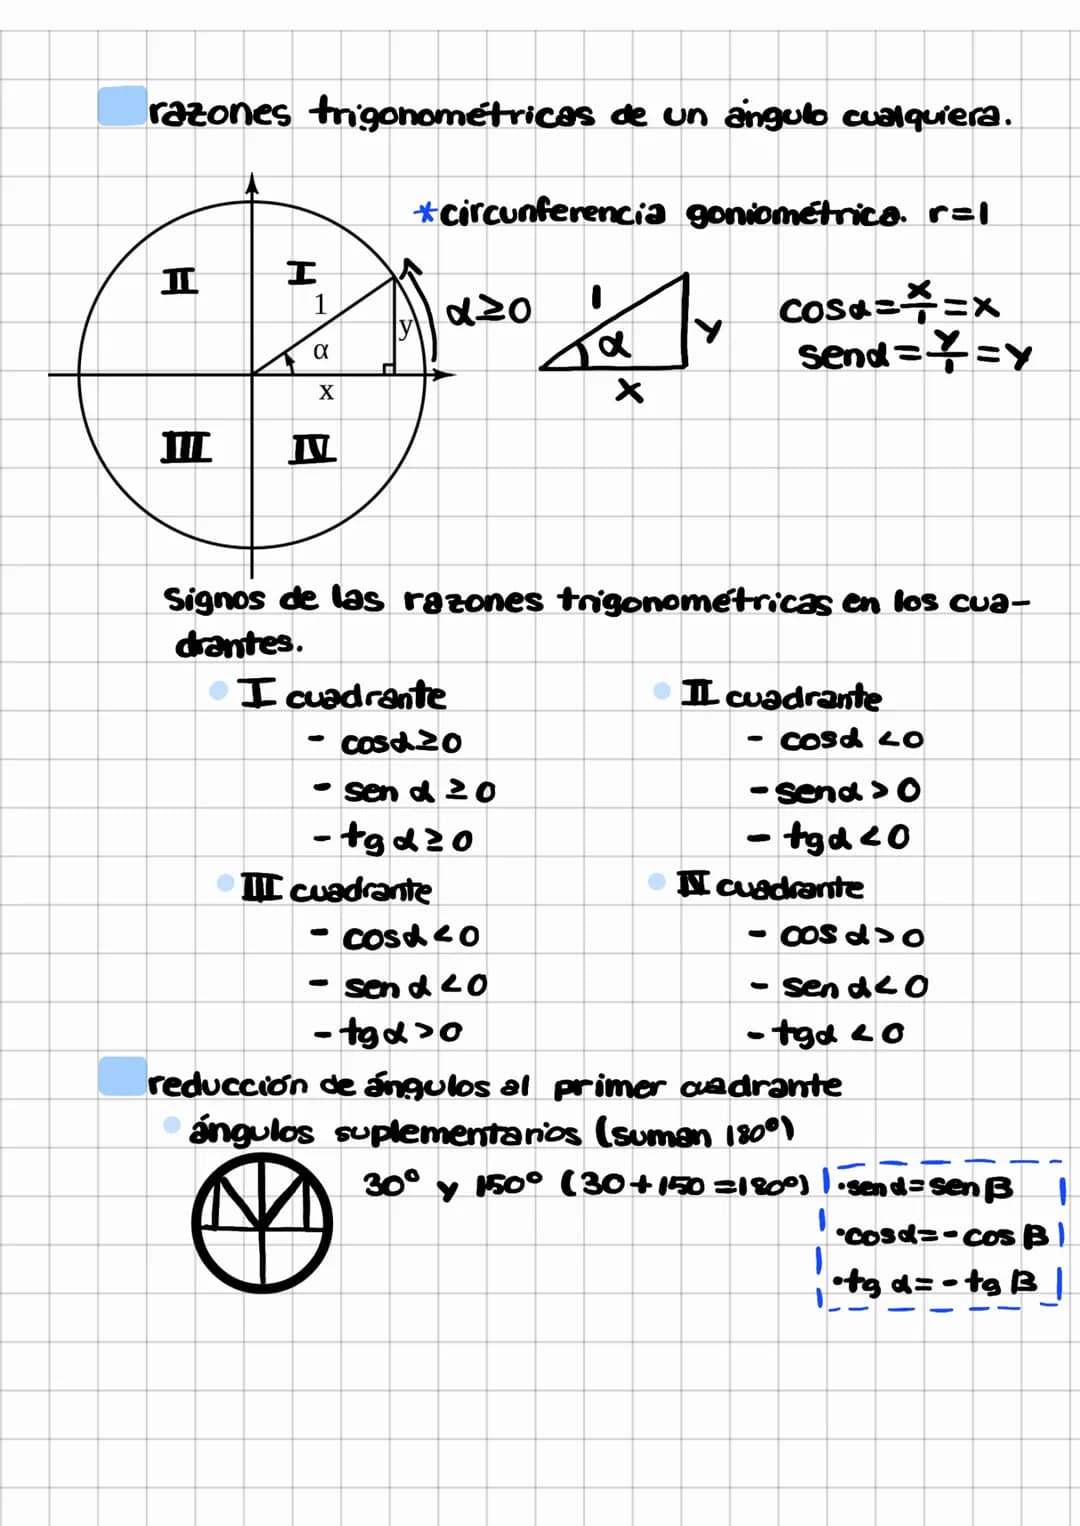 razones trigonométricas de un ángulo cualquiera.
*circunferencia goniométrica. r=1
II I
1
α
y
x
III IV
α≥0
1
α
y
x
cosα=x/1=x
senα=y/1=y
Signos de las razones trigonométricas en los cua-
drantes.
I cuadrante
- cosα≥0
- sen α ≥0
- tg α≥0
II cuadrante
- cosα <0
- senα>0
- tgα<0
III cuadrante
- cosα<0
- sen α <0
- tgα>0
IV cuadrante
- cos α>0
- sen α<0
- tgα <0
reducción de ángulos al primer cuadrante
ángulos suplementarios (suman 180º)
30º y 150º (30+150=180º)
·senα=senβ
·cosα=-cosβ
·tg α=-tgβ